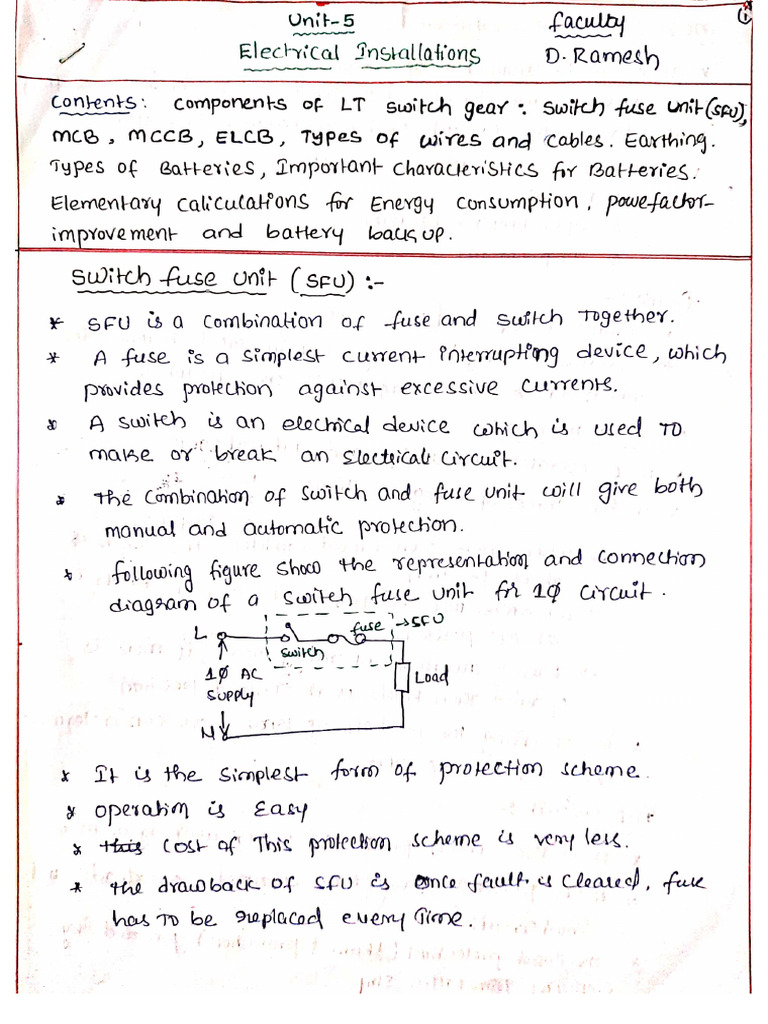 Unit-5 faculty 1
Electrical Installations D. Ramesh
Contents: Components of LT switch gear: Switch fuse unit (SFU),
MCB, MCCB, ELCB, Types of wires and cables. Earthing.
Types of Batteries, Important characteristics for Batteries.
Elementary Caliculations for Energy consumption, powefactor-
improvement and battery backup.
Switch fuse unit (SFU) :-
* SFU is a combination of fuse and switch together.
* A fuse is a simplest current interrupting device, which
provides protection against excessive currents.
* A switch is an electrical device which is used to
make or break an Electrical circuit.
* The combination of switch and fuse unit will give both
manual and automatic protection.
* following figure shows the representation and connection
diagram of a switch fuse unit for 1ϕ circuit.
L switch fuse → SFU
1ϕ AC
supply
Load
N
* It is the simplest form of protection scheme.
* operation is Easy
* this cost of This protection scheme is very less.
* the drawback of SFU is once fault is cleared, fuse
has to be replaced every time.